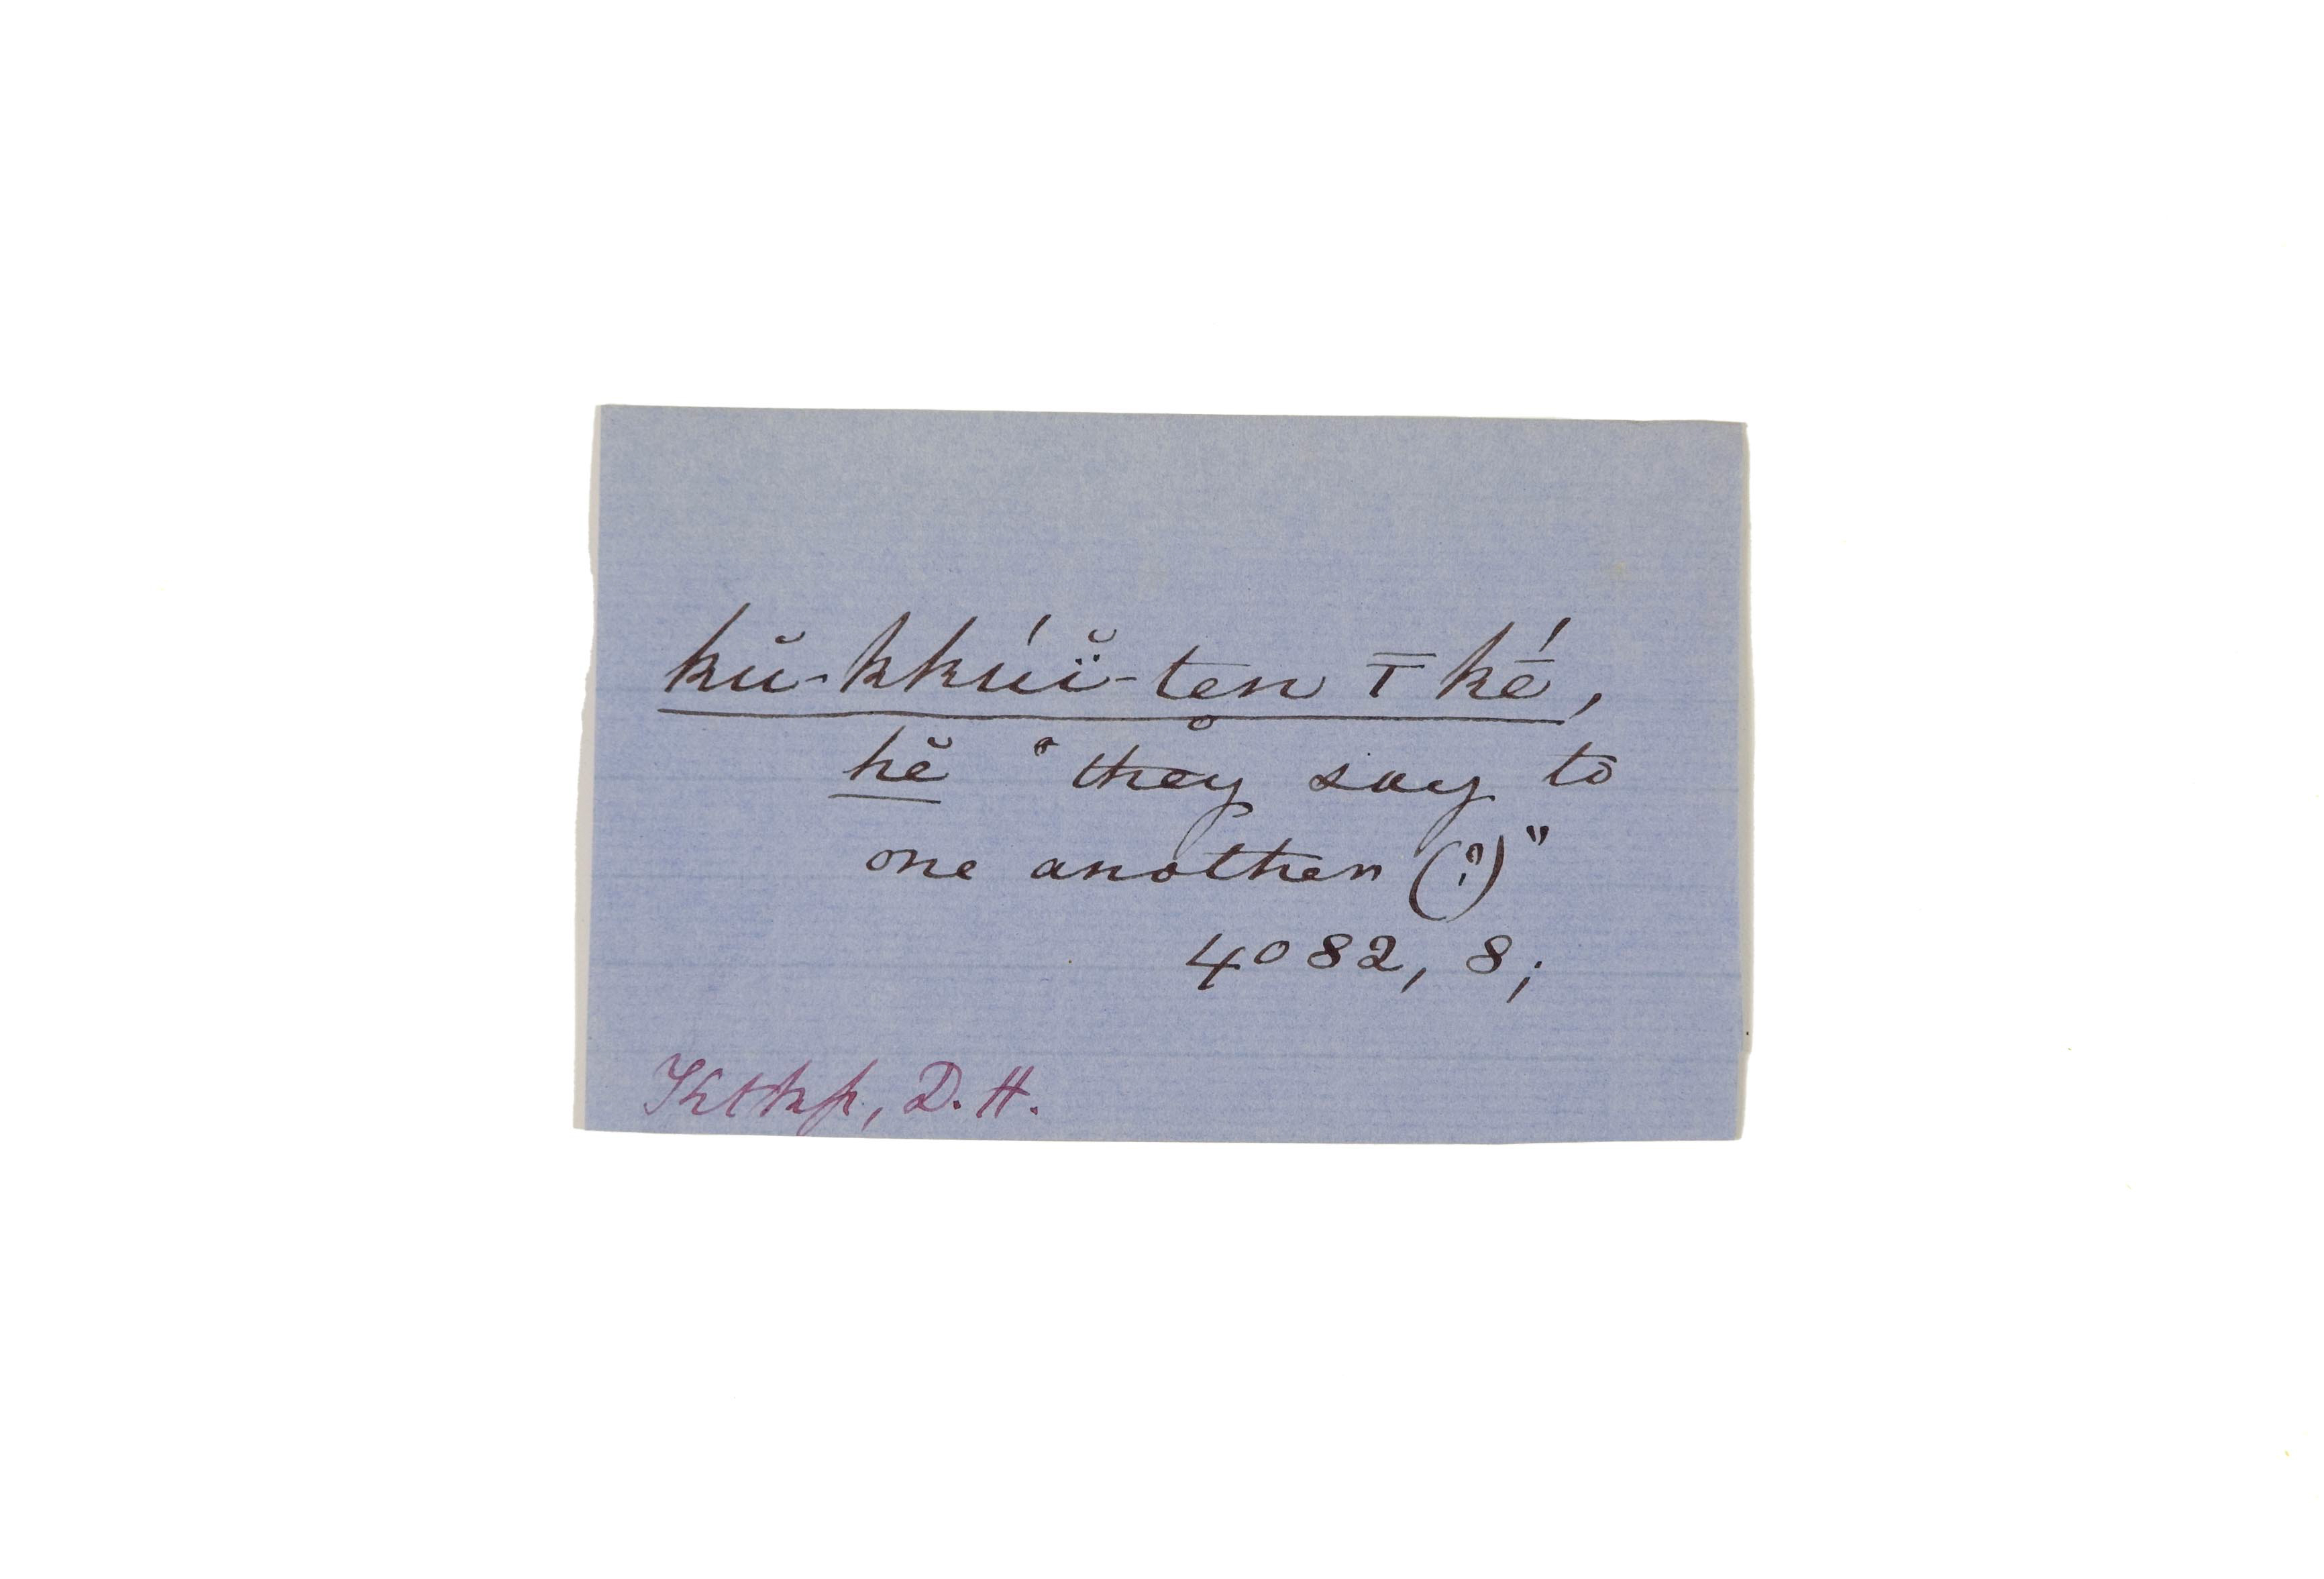 kŭ-kkúĭ-ten T̄ ké̄,
hĕ "they say to
one another (?)"
4082, 8;
Ktthp, D.H.